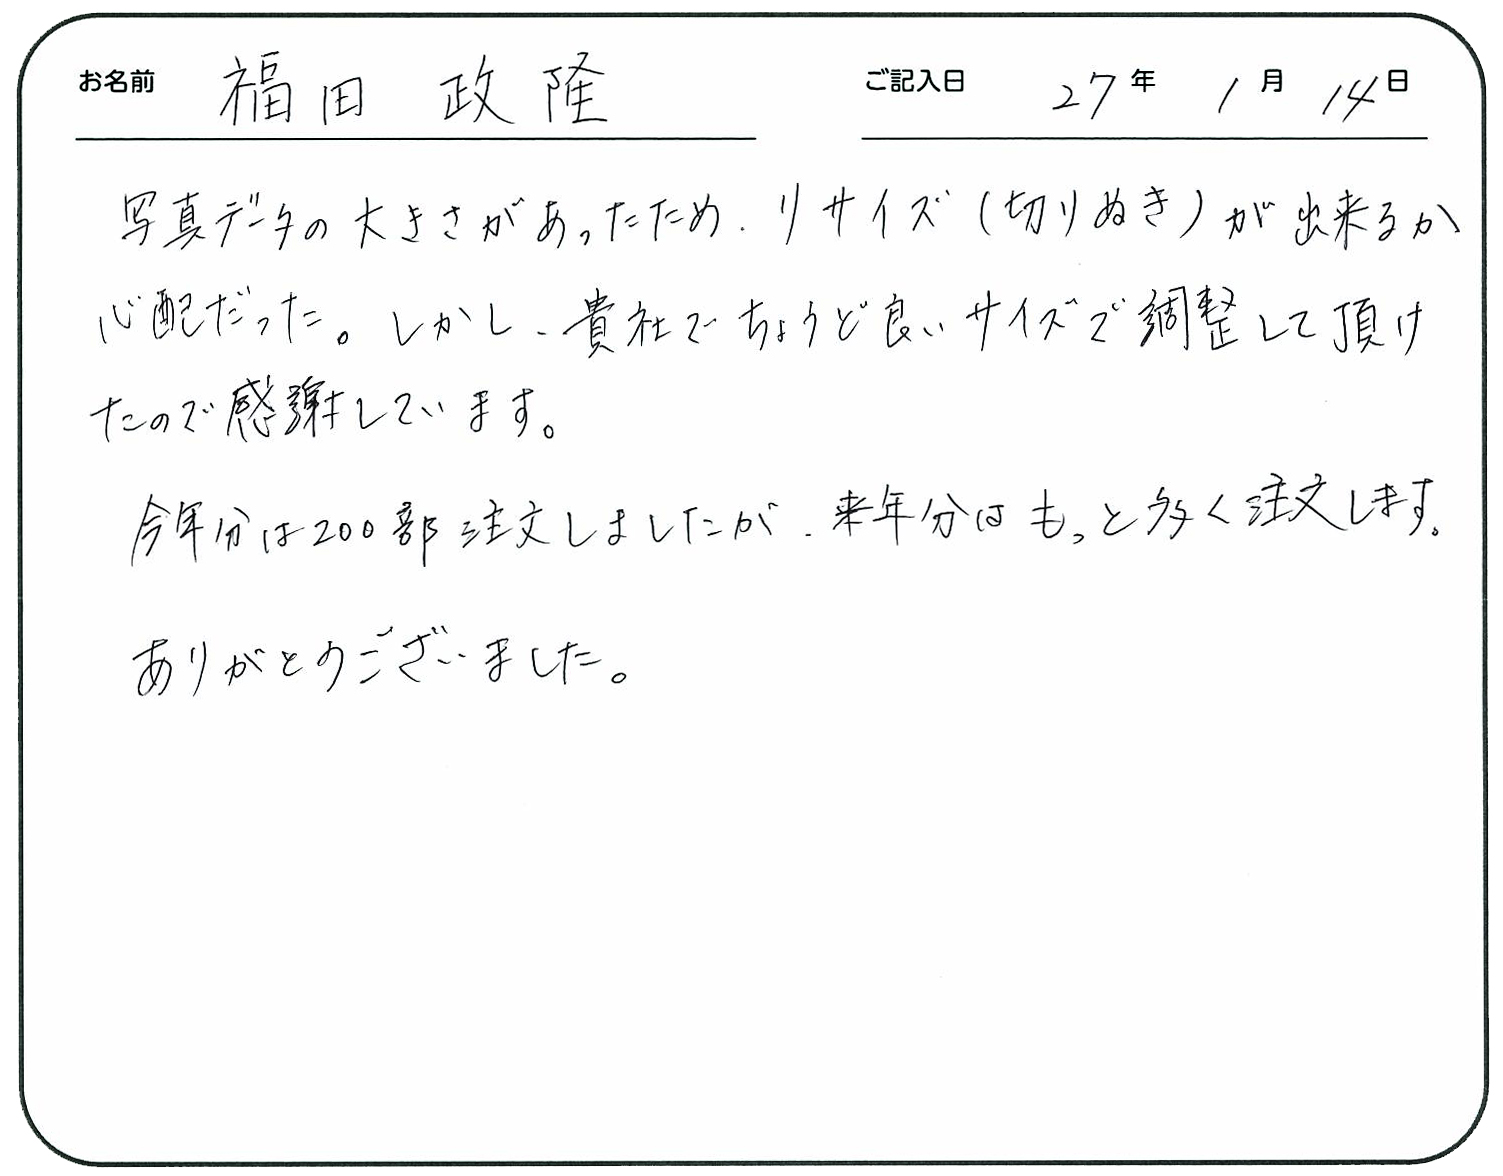 お名前 福田 政隆 ご記入日 27年 1月 14日
写真データの大きさがあったため、リサイズ(切りぬき)が出来るか
心配だった。しかし、貴社でちょうど良いサイズで調整して頂け
たので感謝しています。
今年分は200部注文しましたが、来年分はもっと多く注文します。
ありがとのございました。